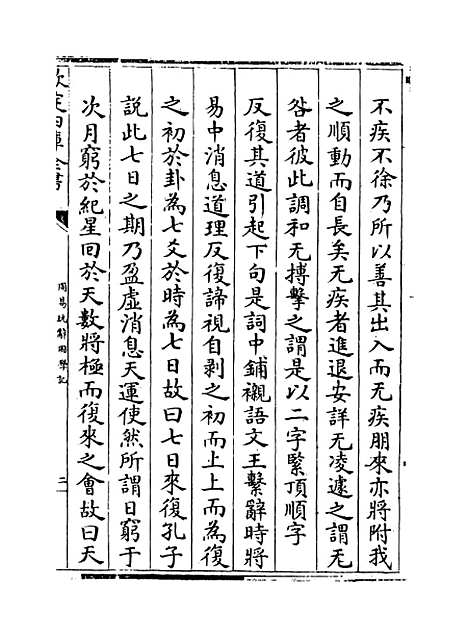 不疾不徐乃所以善其出入而无疾朋來亦將附我
之順動而自長矣无疾者進退安詳无凌遽之謂无
咎者彼此調和无搏擊之謂是以二字緊頂順字
反復其道引起下句是詞中鋪襯語文王繫辭時將
易中消息道理反復諦視自剥之初而上上而為復
之初於卦為七爻於時為七日故曰七日來復孔子
說此七日之期乃盈虚消息天運使然所謂日窮于
次月窮於紀星回於天數將極而復來之會故曰天
欽定四庫全書
周易玩辭困學記
二